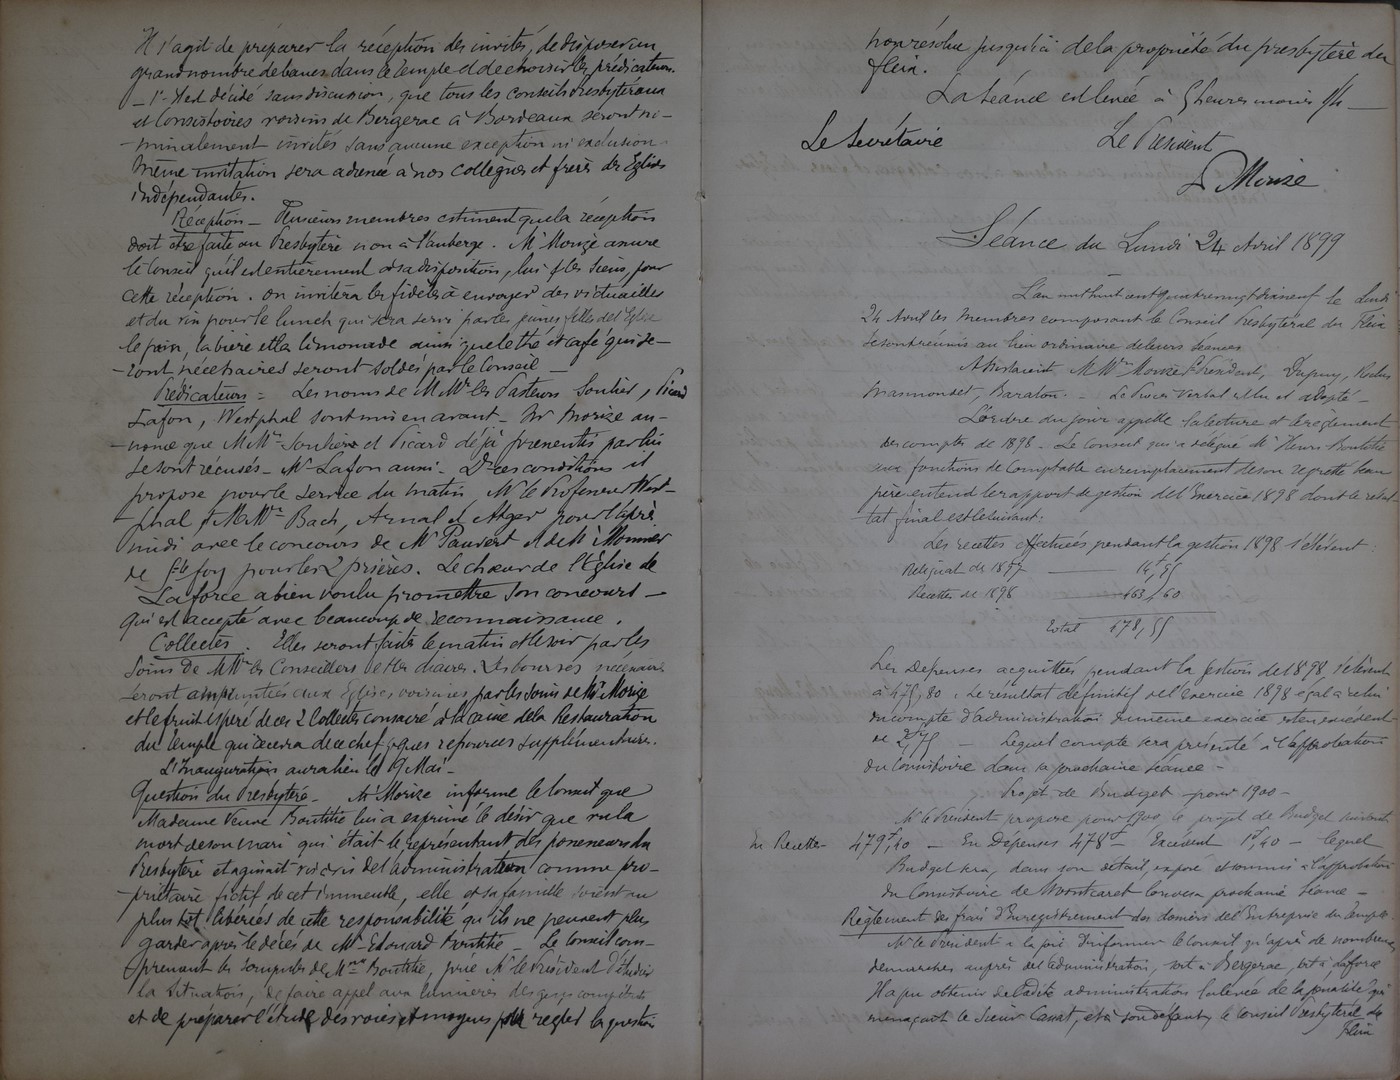 Il s'agit de préparer la réception des invités, de disposer un
grand nombre de bancs dans le temple et de choisir les prédicateurs.
_ 1° Il est décidé sans discussion, que tous les conseils Presbytéraux
et Consistoires voisins de Bergerac à Bordeaux seront no-
-minalement invités sans aucune exception ni exclusion.
Même invitation sera adressée à nos collègues et frères des Eglises
indépendantes.
Réception _ Plusieurs membres estiment que la réception
doit être faite au Presbytère non à l'auberge. Mr Morize assure
le Conseil qu'il est entièrement à sa disposition, lui & les siens, pour
cette réception. On invitera les fidèles à envoyer des victuailles
et du vin pour le lunch qui sera servi par les jeunes filles de l'Eglise
le pain, la bière et la limonade ainsi que le thé et café qui se-
-ront nécessaires seront soldés par le Conseil _
Prédicateurs = Les noms de MMrs les Pasteurs Soulier, Picard
Lafon, Westphal sont mis en avant. Mr Morize an-
-nonce que MMrs Soulier et Picard déjà pressentis par lui
se sont récusés _ Mr Lafon aussi. Ds ces conditions il
propose pour le service du matin Mr le Professeur West-
-phal & MMrs Bach, Arnal et Atger pour l'après
midi avec le concours de Mr Pauvert & de Mr Monnier
de Ste foy pour les 2 prières. Le chœur de l'Eglise de
Laforce a bien voulu promettre son concours _
qui est accepté avec beaucoup de reconnaissance.
Collectes. Elles seront faites le matin et le soir par les
soins de MMrs les Conseillers et les diacres. Les bourses nécessaires
seront empruntées aux Eglises voisines par les soins de Mr Morize
et le fruit espéré de ces 2 Collectes consacré à la caisse de la Restauration
du temple qui aura de ce chef qques ressources supplémentaires.
L'Inauguration aura lieu le 9 Mai _
Question du Presbytère _ Mr Morize informe le Conseil que
Madame Veuve Boutitié lui a exprimé le désir que vu la
mort de son mari qui était le représentant des possesseurs du
Presbytère et agissait vis à vis de l'administration comme pro-
-priétaire fictif de cet immeuble, elle et sa famille soient au
plus tôt libérées de cette responsabilité qu'ils ne peuvent plus
garder après le décès de Mr Edouard Boutitié _ Le Conseil com-
-prenant les scrupules de Mme Boutitié, prie Mr le Président d'étudier
la situation, de faire appel aux lumières des gens compétents
et de préparer l'étude des voies et moyens pour régler la question
non résolue jusqu'ici de la propriété du presbytère du
fleix.
La séance est levée à 5 heures moins 1/4 _
Le Secrétaire
Le Président
L Morize
Séance du Lundi 24 Avril 1899
L'an mil huit cent quatre vingt dix neuf le Lundi
24 Avril les Membres composant le Conseil Presbytéral du Fleix
se sont réunis au lieu ordinaire de leurs séances
Assistaient MMrs Morize Président, Dupuy,
Baraton. _ Le Procès Verbal est lu et adopté _
L'ordre du jour appelle la lecture et le règlement
des comptes de 1898 _ Le Conseil qui a délégué Mr Henri Boutitié
aux fonctions de Comptable en remplacement de son regretté beau
père entend le rapport de gestion de l'Exercice 1898 dont le résul-
tat final est le suivant:
Les recettes effectuées pendant la gestion 1898 s'élèvent:
Reliquat de 1897 _ 14f,95
Recettes de 1898 _ 663,60
Total 678,55
Les Dépenses acquittées pendant la gestion de 1898, s'élèvent
à 475,80. Le résultat définitif de l'exercice 1898 égal à celui
du compte d'administration du même exercice est en excédent
de 2,75 _ Lequel compte sera présenté à l'approbation
du Consistoire dans sa prochaine séance _
Projet de Budget pour 1900 _
Mr le Président propose pour 1900 le projet de Budget suivant
En Recettes 479f,40 _ En Dépenses 478f _ Excédent 1f,40 _ lequel
Budget sera, dans son détail, exposé et soumis à l'approbation
du Consistoire de Montcaret lors sa prochaine séance _
Règlement des frais d'Enregistrement des dossiers de l'Entreprise du temple.
Mr le Président a la joie d'informer le Conseil qu'après de nombreuses
démarches auprès de l'administration, soit à Bergerac, soit à Laforce
Il a pu obtenir de ladite administration l'levée de la pénalité qui
menaçait le Sieur Cassat, et à son défaut, le Conseil Presbytéral du
Fleix